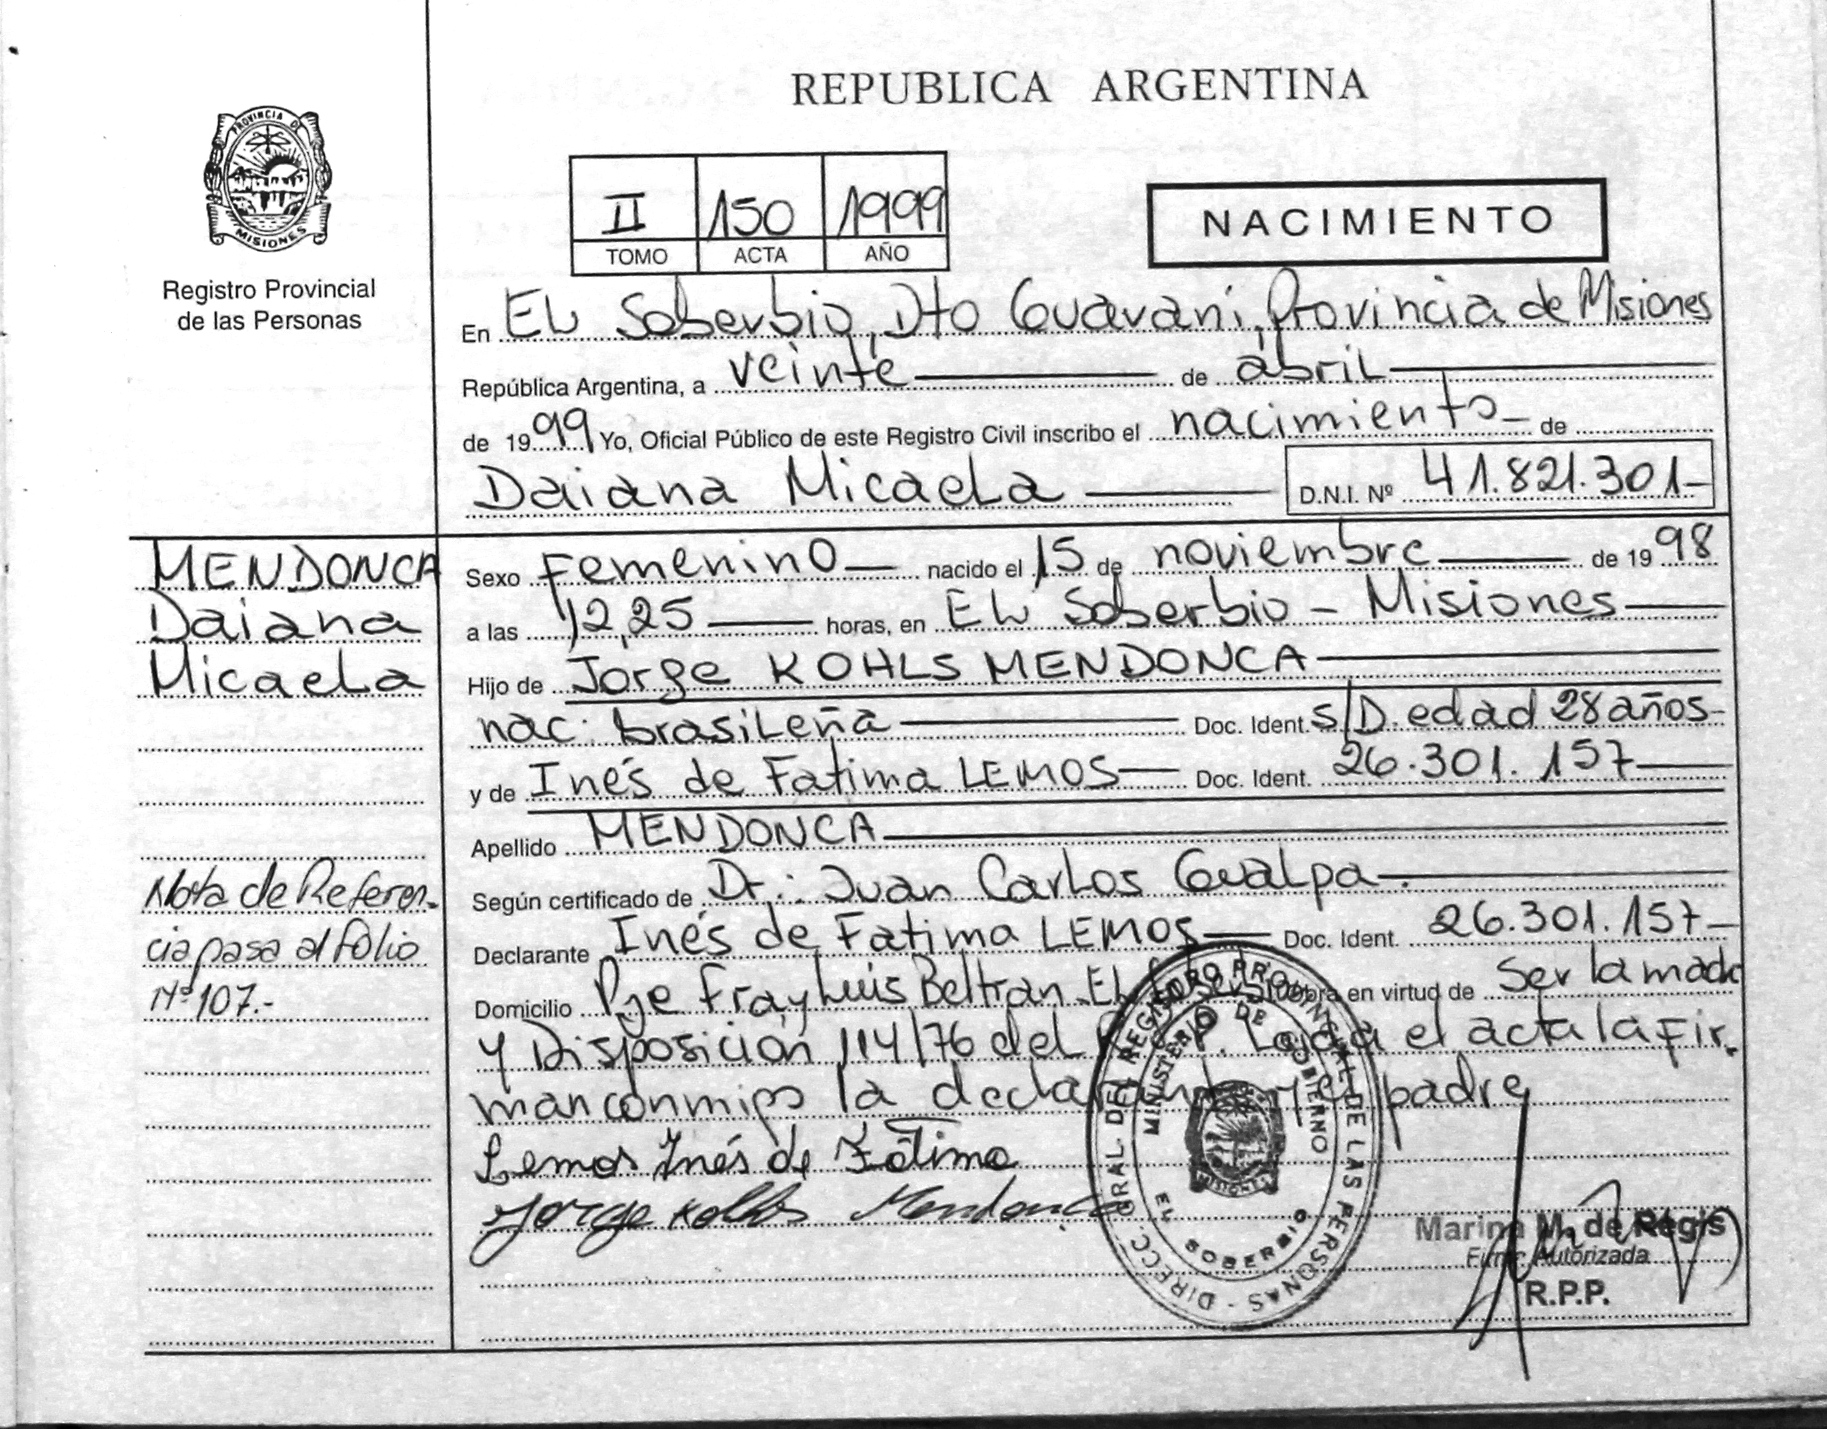 REPUBLICA ARGENTINA
PROVINCIA DE
MISIONES
Registro Provincial
de las Personas
II 150 1999
TOMO ACTA AÑO
NACIMIENTO
En EL Soberbio, Dto Guaraní, Provincia de Misiones
República Argentina, a veinte de abril
de 1999 Yo, Oficial Público de este Registro Civil inscribo el nacimiento de
Daiana Micaela D.N.I. Nº 41.821.301
MENDONCA
Daiana
Micaela
Sexo Femenino nacido el 15 de noviembre de 1998
a las 12,25 horas, en EL Soberbio - Misiones
Hijo de Jorge KOHLS MENDONCA
nac: brasileña Doc. Ident. S/D. edad 28 años
y de Inés de Fatima LEMOS Doc. Ident. 26.301.157
Apellido MENDONCA
Según certificado de Dr.: Juan Carlos Gualpa.
Declarante Inés de Fatima LEMOS Doc. Ident. 26.301.157
Domicilio Pje Fray Luis Beltran El Soberbio obra en virtud de ser la madre
y Disposición 114/76 del Leída el acta la fir.
man conmigo la declarante y el padre
Nota de Referen-
cia pasa al folio
Nº 107.-
Lemos Inés de Fátima
Jorge Kohls Mendonca
DIRECC. GRAL. DEL REGISTRO PROVINCIAL DE LAS PERSONAS -
MINISTERIO DE GOBIERNO
MISIONES
EL SOBERBIO
Marina M. de Regis
Firma Autorizada
R.P.P.